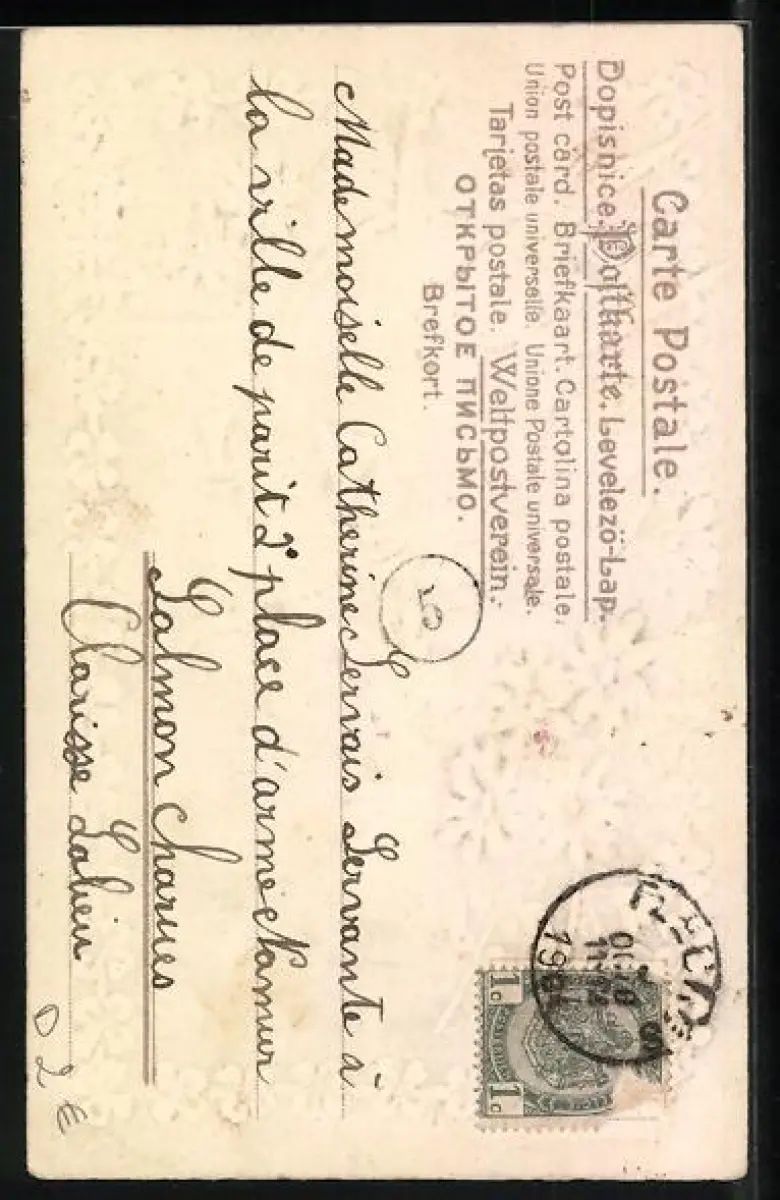 Carte Postale.
Dopisnice. Postkarte. Levelezö-Lap.
Post card. Briefkaart. Cartolina postale.
Union postale universelle. Unione Postale universale.
Tarjetas postale. Weltpostverein.
ОТКРЫТОЕ ПИСЬМО.
Brefkort.
1c 1c
Mademoiselle Catherine Servais Servante à
la ville de parit 2e place d'arme Namur
Salmon Charues
Clarisse
D 2 €